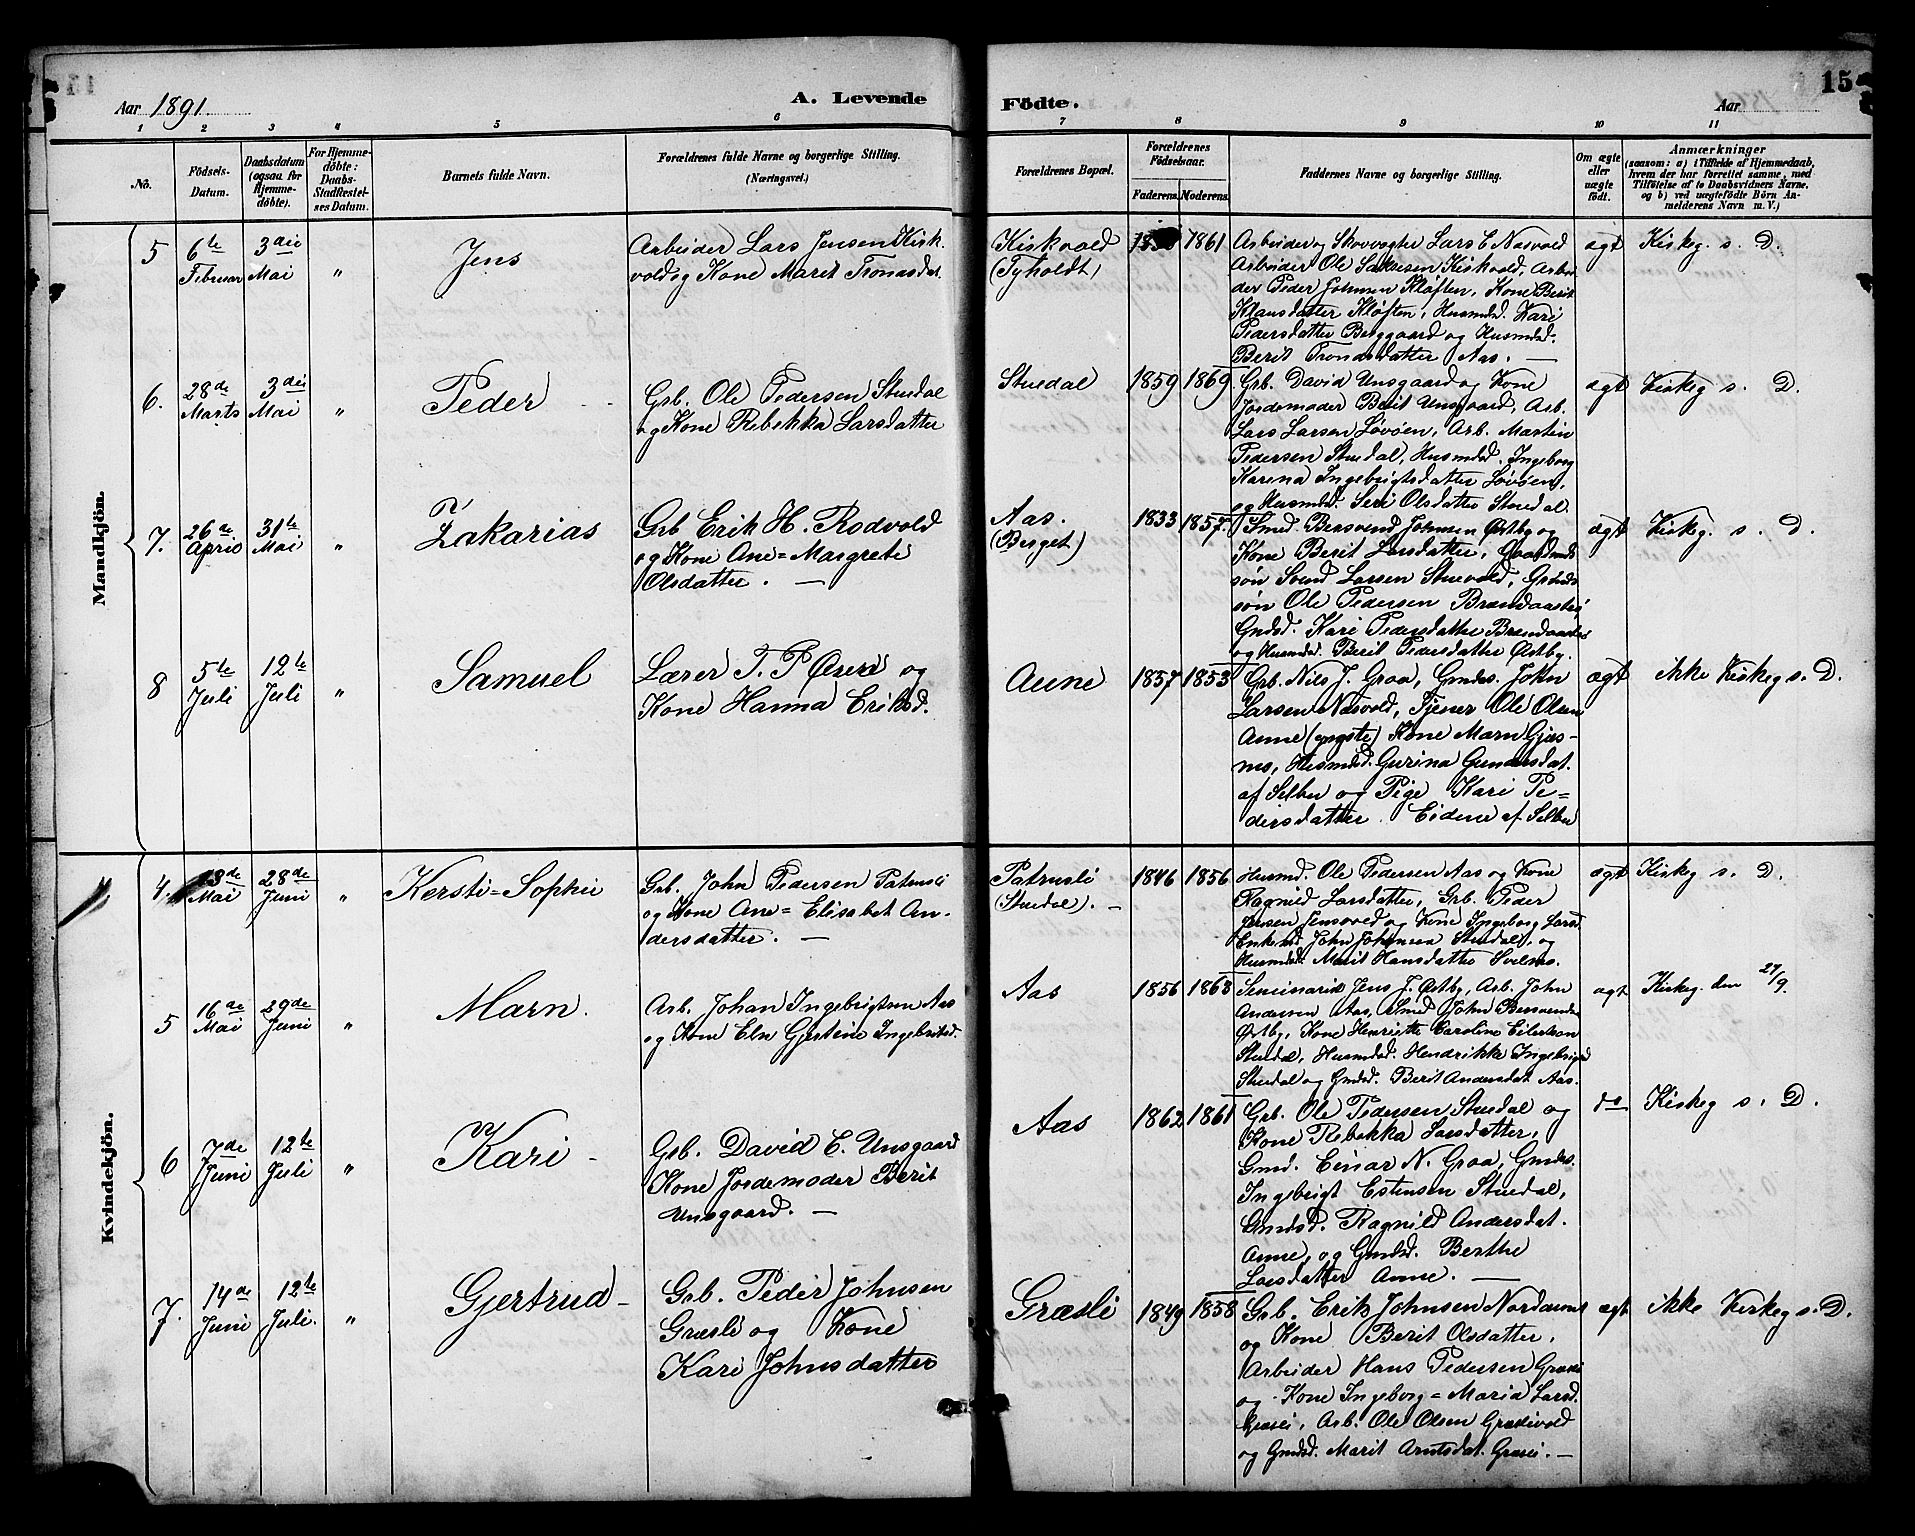 Aar 1891.
A. Levende
Födte.
Aar
15
1
2
3
4
5
6
7
8
9
10
11
No.
Födsels-
Datum.
Daabsdatum
(ogsaa for
Hjemme-
döbte).
For Hjemme-
döbte:
Daabs-
Stadfæstel-
ses Datum.
Barnets fulde Navn.
Forældrenes fulde Navne og borgerlige Stilling.
(Næringsvei.)
Forældrenes Bopæl.
Forældrenes
Födselsaar.
Faderens.
Moderens.
Faddernes Navne og borgerlige Stilling.
Om ægte
eller
uægte
födt.
Anmærkninger
(saasom: a) i Tilfælde af Hjemmedaab,
hvem der har forrettet samme, med
Tilföielse af to Daabsvidners Navne,
og b) ved uægtefödte Börn An-
melderens Navn m. V.)
Mandkjön.
5
6te
Februar
3die
Mai
"
Jens
Arbeider Lars Jensen Kirk-
vold og Kone Marit Tronsdat.
Kirkvold
(Tyholdt)
1861
Arbeider og Skovvogter Lars E Næsvold
Arbeider Ole Larsen Kirkvold, Arbei
der Peder Johnsen Kløften, Kone Berit
Klausdatter Kløften, Husmdsd. Kari
Pedersdatter Berggaard og Husmdsd.
Berit Tronsdatter Aas. —
ægt
Kirkeg s. D.
6.
28de
Marts
3die
Mai
"
Peder
Grb. Ole Pedersen Stuedal
og Kone Rebekka Larsdatter
Stuedal
1859
1869
Grb. David Unsgaard og Kone
Jordemoder Berit Unsgaard, Arb.
Lars Larsen Løvøen, Arb. Martin
Pedersen Stuedal, Husmdsd. Ingeborg
Karina Ingebrigtsdatter Løvøen,
og Husmdsd. Seri Olsdatter Stuedal.
ægt
Kirkeg s. D.
7.
26de
April
31te
Mai
"
Zakarias
Grb Erik H. Rodvold
og Kone Ane=Margrete
Olsdatter. —
Aas.
(Berget)
1833
1857
Smed. Bersvend Johnsen Østby og
Kone Berit Larsdatter, Gaardmds
søn Svend Larsen Stuevold, Grbmds
søn Ole Pedersen Brændaasen
Gmdsd. Kari Pedersdatter Brændaasen
og Husmdsd. Berit Pedersdatter Østby.
ægt
Kirkeg. s. D.
8
5te
Juli
12te
Juli
"
Samuel
Lærer T. P. Øveren og
Kone Hanna Eriksd.
Aune
1857
1853
Grb. Nils J. Graa, Gmdss. John
Larsen Næsvold, Tjener Ole Olsen
Aune (yngste) Kone Marn Gjæs-
nes, Husmdsd. Gurina Gundersdat.
af Selbu og Pige Kari Pe-
dersdatter. Eidene af Selbu
ægt
ikke Kirkeg s. D.
Kvindekjön.
4.
13de
Mai
28de
Juni
"
Kersti=Sophie
Grb. John Pedersen Patrusli
og Kone Ane=Elisabet An-
dersdatter. —
Patrusli
(Stuedal). —
1846
1856
Husmd. Ole Pedersen Aas og Kone
Ragnild Larsdatter, Grb. Peder
Jensen Jensvold og Kone Ingeborg Larsd.
Enkemd. John Johnsen Stuedal, og
Husmdsd. Marit Hansdatter Svelmo.
ægt
Kirkeg s. D.
5
16de
Mai
29de
Juni
"
Marn.
Arb. Johan Ingebrigtsen Aas
og Kone Eln Gjertine Ingebritsd.
Aas
1856
1863
Seminarist Jens J. Østby, Arb. John
Andersen Aas, Smed John Bersvendsen
Østby, Kone Henriette Caroline Eilertsen
Stuedal, Husmdsd. Hendrikke Ingebrigd
Stuedal og Gmdsd. Berit Andersdat Aas.
ægt
Kirkeg. den 27/9.
6
7de
Juni
12te
Juli
"
Kari
Grb. David E. Unsgaard
Kone Jordemoder Berit
Unsgaard. —
Aas
1862
1861
Grb. Ole Pedersen Stuedal og
Kone Rebekka Larsdatter,
Gmd. Einar N. Graa, Gmdss.
Ingebrigt Estensen Stuedal,
Gmdsd. Ragnild Andersdat.
Aune, og Gmdsd. Berthe
Larsdatter Aune. —
do
Kirkeg s. D.
7.
14de
Juni
12te
Juli.
"
Gjertrud
Grb. Peder Johnsen
Græsli og Kone
Kari Johnsdatter
Græsli
1849
1858
Grb. Erik Johnsen Nordaune
og Kone Berit Olsdatter.
Arbeider Hans Pedersen Græsli
og Kone Ingeborg=Maria Larsd.
Græsli, Arb. Ole Olsen Græslivold
og Gmdsd. Marit Arntsdat. Græsli. —
ægt
ikke Kirkeg s. D.